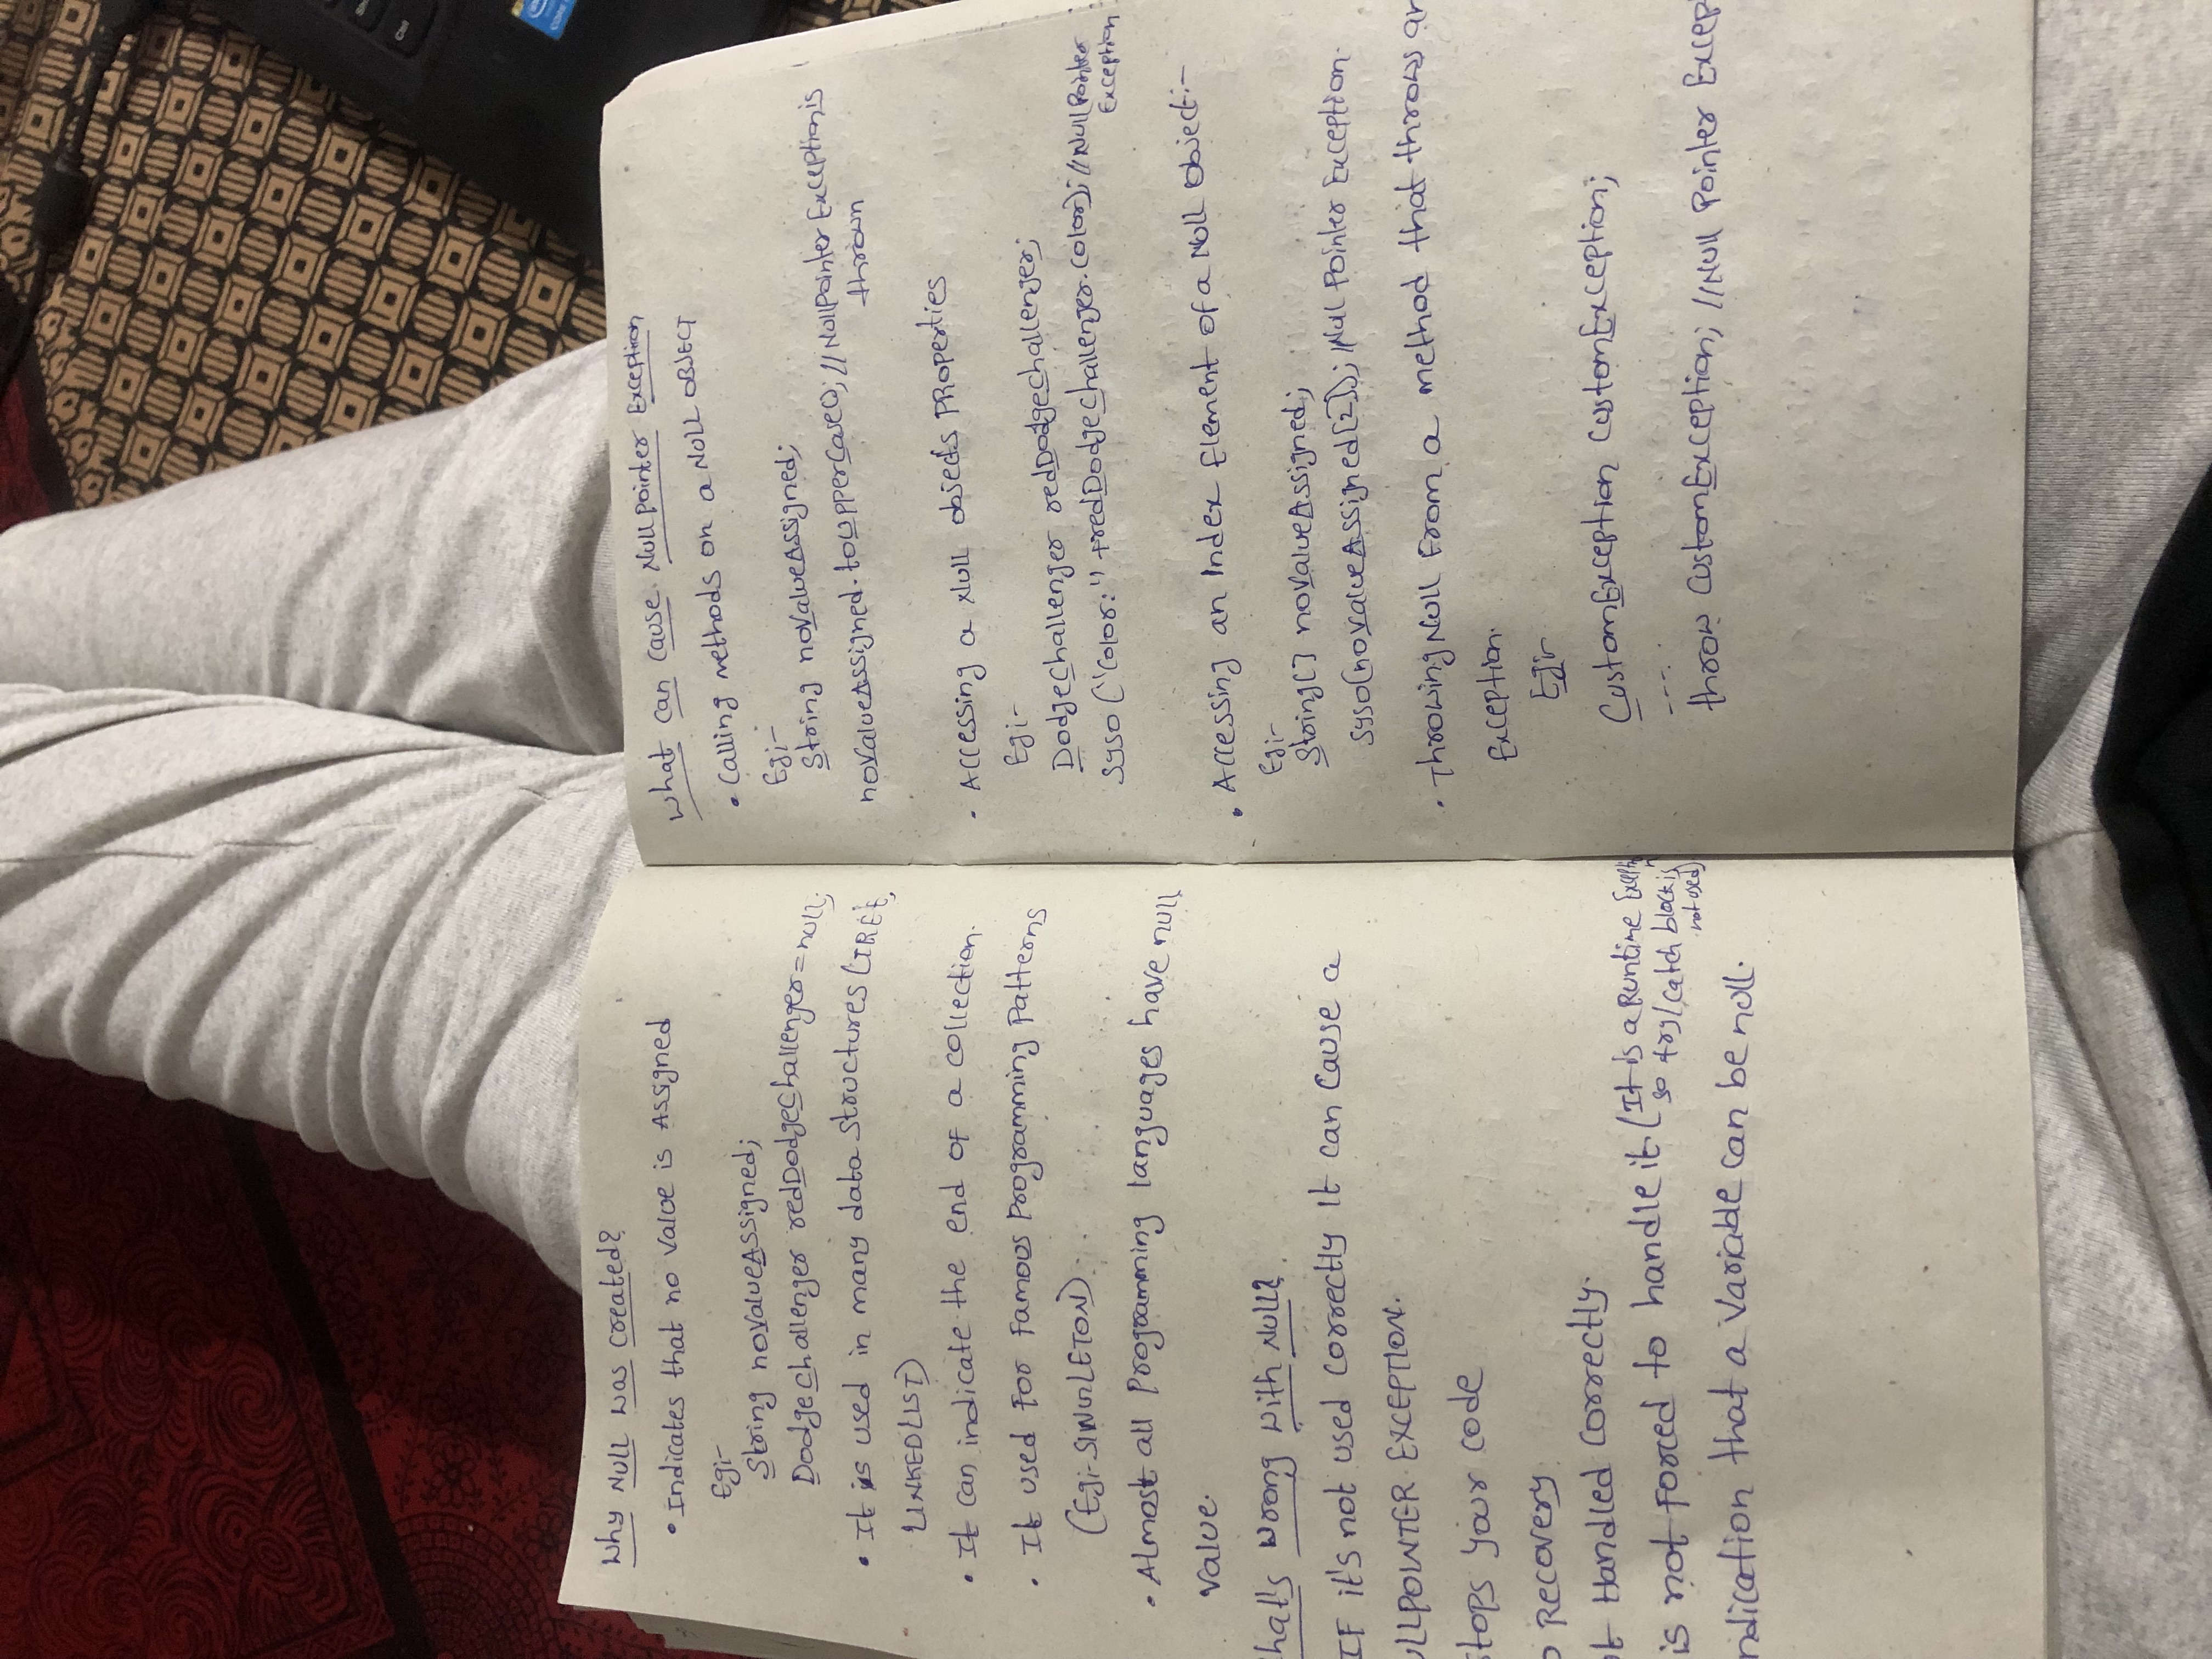 Why Null was created?
• Indicates that no value is Assigned
Eg:-
String noValueAssigned;
DodgeChallenger redDodgeChallenger = null;
• It is used in many data structures (TREE,
LINKEDLIST)
• It can indicate the end of a collection.
• It used for famous Programming Patterns
(Eg:- SINGLETON).
• Almost all Programming languages have null
value.
hat's wrong with Null?
IF it's not used correctly it can cause a
ULLPOINTER EXCEPTION.
Stops your code
o Recovery
ot Handled correctly.
is not forced to handle it (It is a Runtime Exception
so try/catch block is
not used)
ndication that a variable can be null.
What can cause NullPointer Exception
• Calling methods on a NULL OBJECT
Eg:-
String noValueAssigned;
noValueAssigned.toUpperCase(); //NullPointer Exception is
thrown
• Accessing a Null objects PRoperties
Eg:-
DodgeChallenger redDodgeChallenger;
Syso ("Color:" + redDodgeChallenger.color); //NullPointer
Exception
• Accessing an Index Element of a Null Object:-
Eg:-
String[] noValueAssigned;
Syso(noValueAssigned[2]); //Null Pointer Exception.
• Throwing Null From a method that throws an
Exception.
Eg:-
CustomException customException;
---.
throw customException; //Null Pointer Excep
Ctrl
CORE